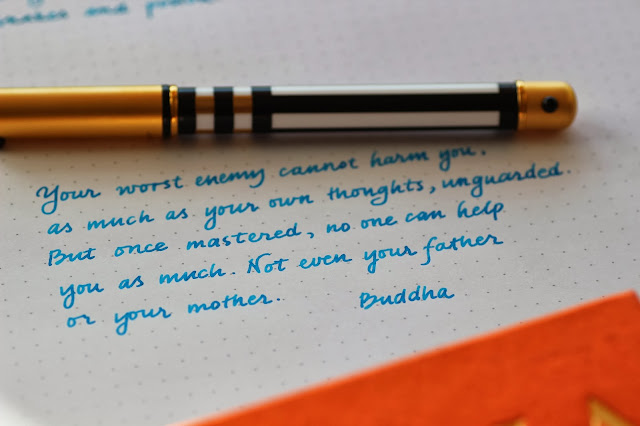 Your worst enemy cannot harm you.
as much as your own thoughts, unguarded.
But once mastered, no one can help
you as much. Not even your father
or your mother.
Buddha